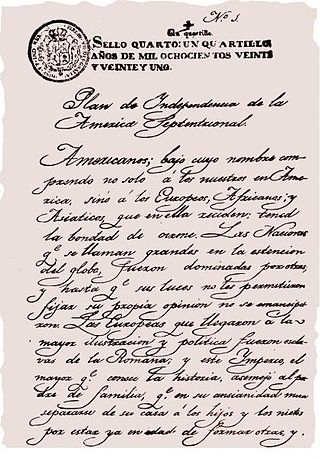 No. 1.
Un quartillo.
SELLO QUARTO: UN QUARTILLO,
AÑOS DE MIL OCHOCIENTOS VEINTE
Y VEINTE Y UNO.
Plan de Independencia de la
America Septentrional.
Americanos; bajo cuyo nombre com
prendo no solo á los nuestros en Ame
rica, sinó á los Europeos, Africanos, y
Asiaticos, que en ella reciden: tened
la bondad de oirme. Las Naciones
q.e se llaman grandes en la estencion
del globo, fueron dominadas por otras,
y hasta q.e sus luces no les permitieron
fijar su propia opinion no se emancipa
ron. Las Europeas que llegaron á la
mayor ilustracion y politica fueron escla
vas de la Romana; y este Imperio, el
mayor q.e conoce la historia, asemejó al pa
dre de familia, q.e en su ancianidad mira
separarse de su casa á los hijos y los nietos
por estar ya en edad de formar otras, y